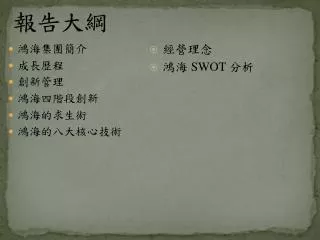 報告大綱
鴻海集團簡介
成長歷程
創新管理
鴻海四階段創新
鴻海的求生術
鴻海的八大核心技術
經營理念
鴻海 SWOT 分析